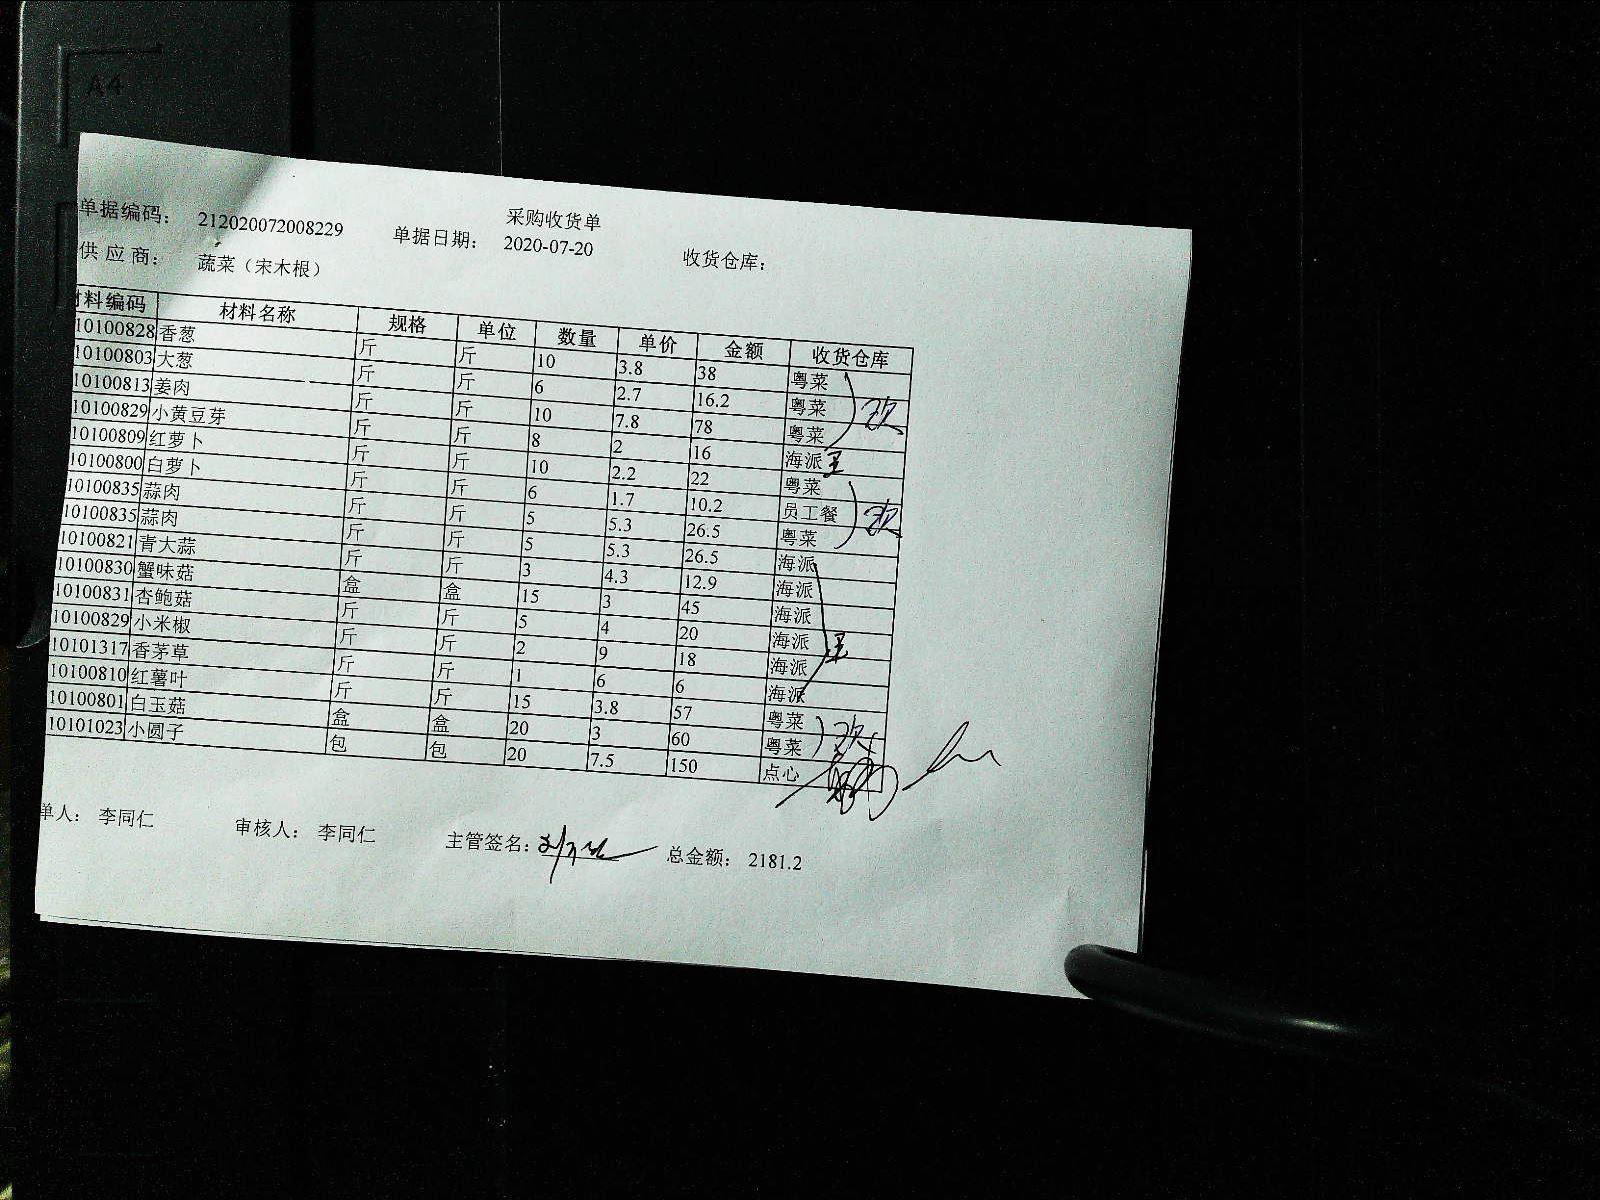 A4
采购收货单
单据编码： 212020072008229 单据日期： 2020-07-20 收货仓库：
供 应 商： 蔬菜（宋木根）
材料编码 材料名称 规格 单位 数量 单价 金额 收货仓库
10100828 香葱 斤 斤 10 3.8 38 粤菜
10100803 大葱 斤 斤 6 2.7 16.2 粤菜
10100813 姜肉 斤 斤 10 7.8 78 粤菜
10100829 小黄豆芽 斤 斤 8 2 16 海派
10100809 红萝卜 斤 斤 10 2.2 22 粤菜
10100800 白萝卜 斤 斤 6 1.7 10.2 员工餐
10100835 蒜肉 斤 斤 5 5.3 26.5 粤菜
10100835 蒜肉 斤 斤 5 5.3 26.5 海派
10100821 青大蒜 斤 斤 3 4.3 12.9 海派
10100830 蟹味菇 盒 盒 15 3 45 海派
10100831 杏鲍菇 斤 斤 5 4 20 海派
10100829 小米椒 斤 斤 2 9 18 海派
10101317 香茅草 斤 斤 1 6 6 海派
10100810 红薯叶 斤 斤 15 3.8 57 粤菜
10100801 白玉菇 盒 盒 20 3 60 粤菜
10101023 小圆子 包 包 20 7.5 150 点心
单人： 李同仁 审核人： 李同仁 主管签名： 总金额： 2181.2